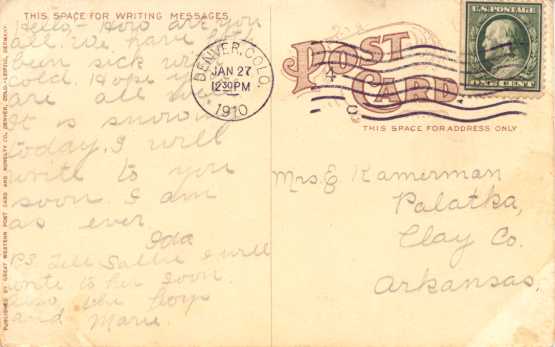 THIS SPACE FOR WRITING MESSAGES
Hello - How are you
all. We have all
been sick with
cold. Hope you
are all well
It is snowing
today. I will
write to you
soon. I am
as ever
Ida
P.S. Tell Sallie I will
write to her soon.
also the boys
and Marie.
PUBLISHED BY GREAT WESTERN POST CARD AND NOVELTY CO. DENVER, COLO.-LEIPZIG, GERMANY.
DENVER, COLO.
JAN 27
12 30 PM
1910
4
POST
CARD
THIS SPACE FOR ADDRESS ONLY
U.S. POSTAGE
ONE CENT
Mrs. E Kamerman
Palatka,
Clay Co.
Arkansas.